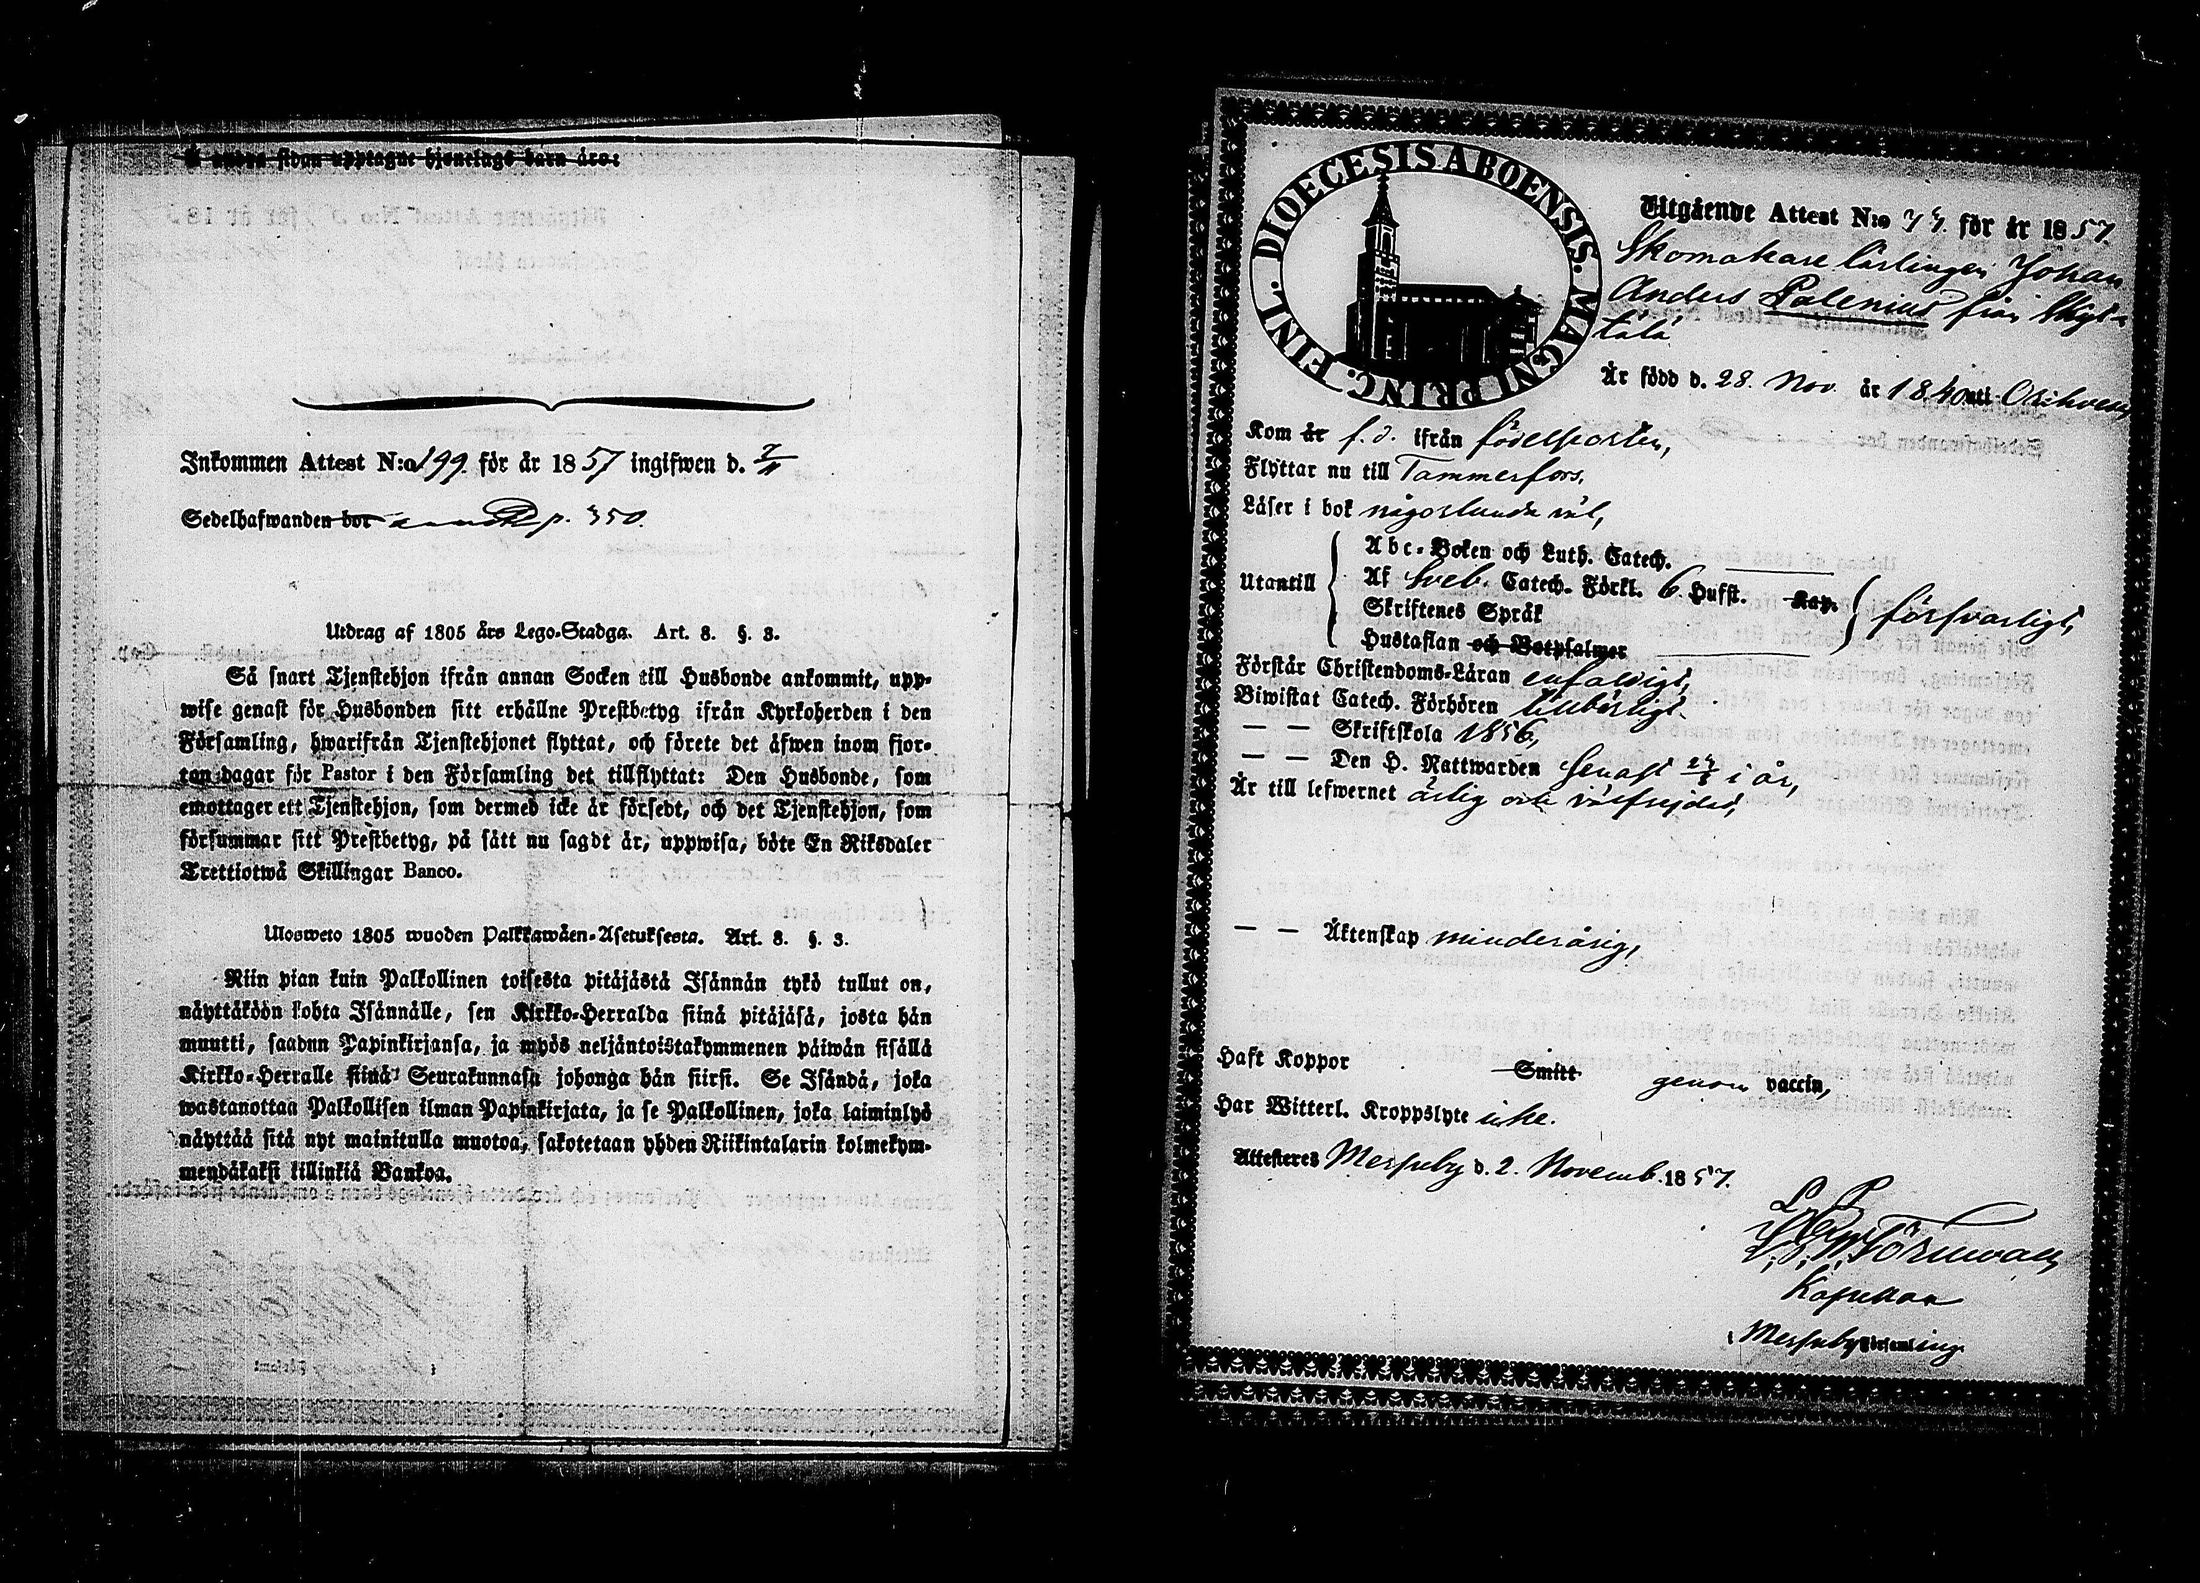 Å andra sidan upptagne hjonelags barn äro:
Inkommen Attest N:o 199 för år 1857 ingifwen d. 7/11
Sedelhafwanden bor p. 350.
Utdrag af 1805 års Lego-Stadga. Art. 8. §. 3.
Så snart Tjenstehjon ifrån annan Socken till Husbonde ankommit, upp-
wise genast för Husbonden sitt erhållne Prestbetyg ifrån Kyrkoherden i den
Församling, hwarifrån Tjenstehjonet flyttat, och förete det äfwen inom fjor-
ton dagar för Pastor i den Församling det tillflyttat: Den Husbonde, som
emottager ett Tjenstehjon, som dermed icke är försedt, och det Tjenstehjon, som
försummar sitt Prestbetyg, på sätt nu sagdt är, uppwisa, böte En Riksdaler
Trettiotwå Skillingar Banco.
Ulosweto 1805 wuoden Palkkawäen-Asetuksesta. Art. 8. §. 3.
Niin pian kuin Palkollinen toisesta pitäjästä Isännän tykö tullut on,
näyttäköön kohta Isännälle, sen Kirkko-Herralda siinä pitäjäsä, josta hän
muutti, saadun Papinkirjansa, ja myös neljäntoistakymmenen päiwän sisällä
Kirkko-Herralle siinä Seurakunnasa johonga hän siirsi. Se Isändä, joka
wastanottaa Palkollisen ilman Papinkirjata, ja se Palkollinen, joka laiminlyö
näyttää sitä nyt mainitulla muotoa, sakotetaan yhden Riikintalarin kolmekym-
mendäkaksi killinkiä Bankoa.
DIOECESIS ABOENSIS. MAGNI PRINC. FINL.
Utgående Attest N:o 74 för år 1857.
Skomakare lärlingen Johan
Anders Palenius från Skyt-
tälä
Är född d. 28. Nov. år 1840 uti Orihvesi
Kom år f. d. ifrån födelseorten,
Flyttar nu till Tammerfors.
Läser i bok någorlunda väl,
Abc-Boken och Luth. Catech.
Utantill Af Sveb. Catech. Förkl. 6 Hufst. Kap. försvarligt,
Skriftenes Språk
Hustaflan och Botpsalmer
Förstår Christendoms-Läran enfaldigt,
Biwistat Catech. Förhören tillbörligt
— — Skriftskola 1856,
— — Den H. Nattwarden senast i år,
Är till lefwernet ärlig och välfrejdad,
— — Äktenskap minderårig,
Haft Koppor Smitt genom vaccin,
Har Witterl. Kroppslyte icke.
Attesteres Messuby d. 2. Novemb. 1857.
L. P.
Törnwall
Kapellan
i Messuby Församling